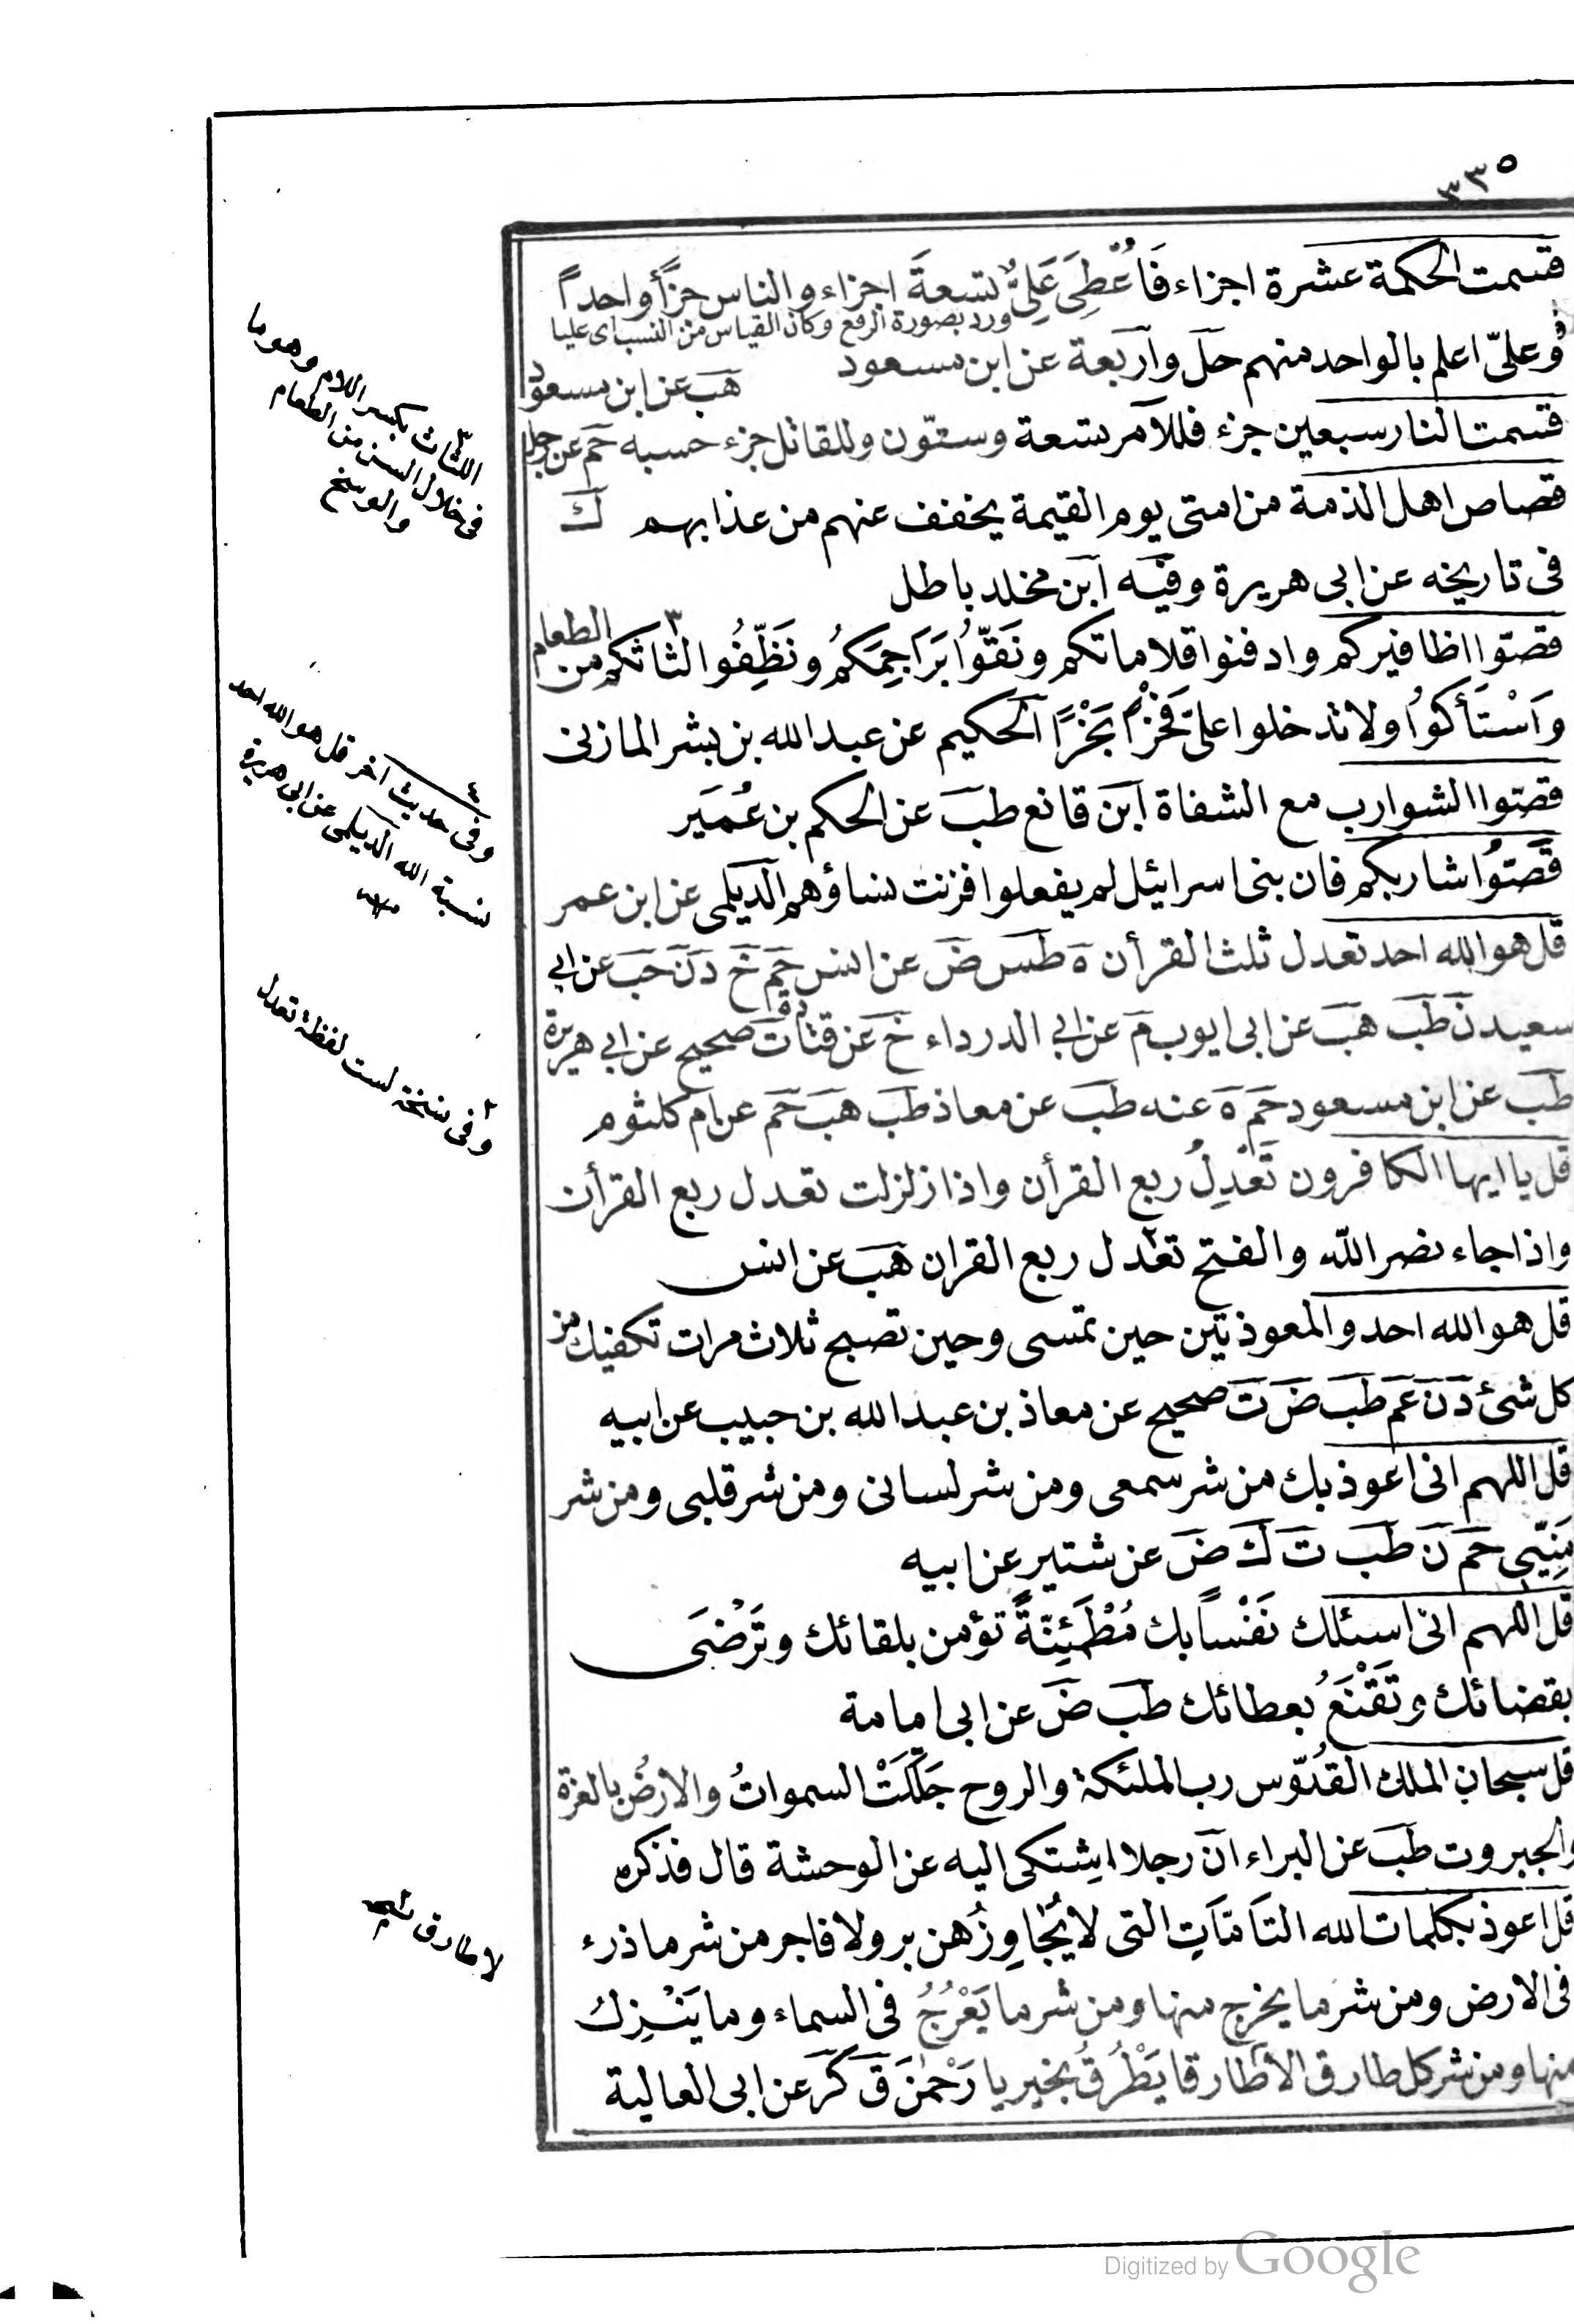 ٣٣٥
قسمت الحكمة عشرة اجزاء فَاُعْطِىَ عَلِىٌّ تسعةَ اجزاء والناس جزأً واحداً
ورد بصورة الرفع وكان القياس من النسب اى عليا
وعلىّ اعلم بالواحد منهم حل واربعة عن ابن مسعود هب عن ابن مسعود
قسمت النار سبعين جزء فللآمر تسعة وستّون وللقاتل جزء حسبه حم عن رجل
قصاص اهل الذمة من امتى يوم القيمة يخفف عنهم من عذابهم ك
فى تاريخه عن ابى هريرة وفيه ابن مخلد باطل
قصّوا اظافيركم وادفنوا قلاماتكم ونَقّوُا بَرَاجِمَكُمْ ونَظِّفُوا لثاثكم ٣ من الطعام
وَاسْتَأكوُا ولا تدخلوا علىّ فَخْرًا بَخْرًا الحكيم عن عبدالله بن بشر المازنى
قصّوا الشوارب مع الشفاة ابن قانع طب عن الحكم بن عُمَير
قَصّوُا شاربكم فان بنى اسرائيل لم يفعلوا فزنت نساؤهم الديلمى عن ابن عمر
قل هو الله احد تعدل ثلث القرأن ه طس ض عن انس حم خ د ن حب عن ابى
سعيد ن طب هب عن ابى ايوب م عن ابى الدرداء خ عن قتادة ت صحيح عن ابى هريرة
طب عن ابن مسعود حم ه عنه طب عن معاذ طب هب حم عن ام كلثوم
قل يا ايها الكافرون تَعْدِلُ ربع القرأن واذا زلزلت تعدل ربع القرأن
واذا جاء نصر الله والفتح تعدل ربع القران هب عن انس
قل هو الله احد والمعوذتين حين تمسى وحين تصبح ثلاث مرات تكفيك من
كل شئ د ن عم طب ض ت صحيح عن معاذ بن عبدالله بن حبيب عن ابيه
قل اللهم انى اعوذ بك من شر سمعى ومن شر لسانى ومن شر قلبى ومن شر
مَنِيّى حم ن طب ت ك ض عن شتير عن ابيه
قل اللهم انى اسئلك نَفْسًا بك مُطْمَئِنّةً تؤمن بلقائك وتَرْضَى
بقضائك وتَقْنَعُ بعطائك طب ض عن ابى امامة
قل سبحان الملك القُدّوس رب الملئكة والروح جَلَّلَتْ السمواتُ والارضُ بالعزة
والجبروت طب عن البراء ان رجلا اشتكى اليه عن الوحشة قال فذكره
قل اعوذ بكلمات الله التآمّاتِ التى لا يُجاوِزُهن بر ولا فاجر من شر ما ذرء
فى الارض ومن شر ما يخرج منها ومن شر ما يَعْرُجُ فى السماء وما يَنْزِلُ
منها ومن شر كل طارق الا طارقا يَطْرُقُ بخير يا رَحْمنُ ق كر عن ابى العالية
اللثاث بكسر اللام وهو ما
فى خلال السن من الطعام
والوسخ
٤ وفى حديث آخر قل هو الله احد
نسبة الله الديلمى عن ابى هريرة
وفى نسخة لست لفظة تعدل
لا طارق
Digitized by Google